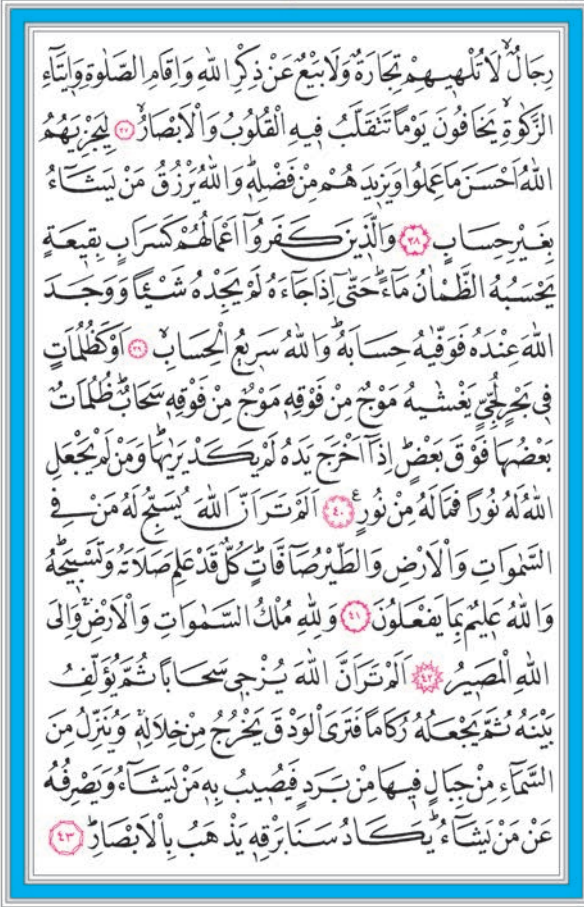 رِجَالٌۙ لَا تُلْهٖيهِمْ تِجَارَةٌ وَلَا بَيْعٌ عَنْ ذِكْرِ اللّٰهِ وَاِقَامِ الصَّلٰوةِ وَاٖيتَٓاءِ
الزَّكٰوةِۙ يَخَافُونَ يَوْماً تَتَقَلَّبُ فٖيهِ الْقُلُوبُ وَالْاَبْصَارُۙ ﴿٣٧﴾ لِيَجْزِيَهُمُ
اللّٰهُ اَحْسَنَ مَا عَمِلُوا وَيَزٖيدَهُمْ مِنْ فَضْلِهٖؕ وَاللّٰهُ يَرْزُقُ مَنْ يَشَٓاءُ
بِغَيْرِ حِسَابٍ ﴿٣٨﴾ وَالَّذٖينَ كَفَرُٓوا اَعْمَالُهُمْ كَسَرَابٍ بِقٖيعَةٍ
يَحْسَبُهُ الظَّمْاٰنُ مَٓاءًؕ حَتّٰٓى اِذَا جَٓاءَهُ لَمْ يَجِدْهُ شَيْـٔاً وَوَجَدَ
اللّٰهَ عِنْدَهُ فَوَفّٰيهُ حِسَابَهُؕ وَاللّٰهُ سَرٖيعُ الْحِسَابِۙ ﴿٣٩﴾ اَوْ كَظُلُمَاتٍ
فٖي بَحْرٍ لُجِّيٍّ يَغْشٰيهُ مَوْجٌ مِنْ فَوْقِهٖ مَوْجٌ مِنْ فَوْقِهٖ سَحَابٌؕ ظُلُمَاتٌ
بَعْضُهَا فَوْقَ بَعْضٍؕ اِذَٓا اَخْرَجَ يَدَهُ لَمْ يَكَدْ يَرٰيهَاؕ وَمَنْ لَمْ يَجْعَلِ
اللّٰهُ لَهُ نُوراً فَمَا لَهُ مِنْ نُورٍ ع ﴿٤٠﴾ اَلَمْ تَرَ اَنَّ اللّٰهَ يُسَبِّحُ لَهُ مَنْ فِي
السَّمٰوَاتِ وَالْاَرْضِ وَالطَّيْرُ صَٓافَّاتٍؕ كُلٌّ قَدْ عَلِمَ صَلَاتَهُ وَتَسْبٖيحَهُؕ
وَاللّٰهُ عَلٖيمٌ بِمَا يَفْعَلُونَ ﴿٤١﴾ وَلِلّٰهِ مُلْكُ السَّمٰوَاتِ وَالْاَرْضِۚ وَاِلَى
اللّٰهِ الْمَصٖيرُ ﴿٤٢﴾ اَلَمْ تَرَ اَنَّ اللّٰهَ يُزْجٖي سَحَاباً ثُمَّ يُؤَلِّفُ
بَيْنَهُ ثُمَّ يَجْعَلُهُ رُكَاماً فَتَرَى الْوَدْقَ يَخْرُجُ مِنْ خِلَالِهٖۚ وَيُنَزِّلُ مِنَ
السَّمَٓاءِ مِنْ جِبَالٍ فٖيهَا مِنْ بَرَدٍ فَيُصٖيبُ بِهٖ مَنْ يَشَٓاءُ وَيَصْرِفُهُ
عَنْ مَنْ يَشَٓاءُؕ يَكَادُ سَنَا بَرْقِهٖ يَذْهَبُ بِالْاَبْصَارِؕ ﴿٤٣﴾